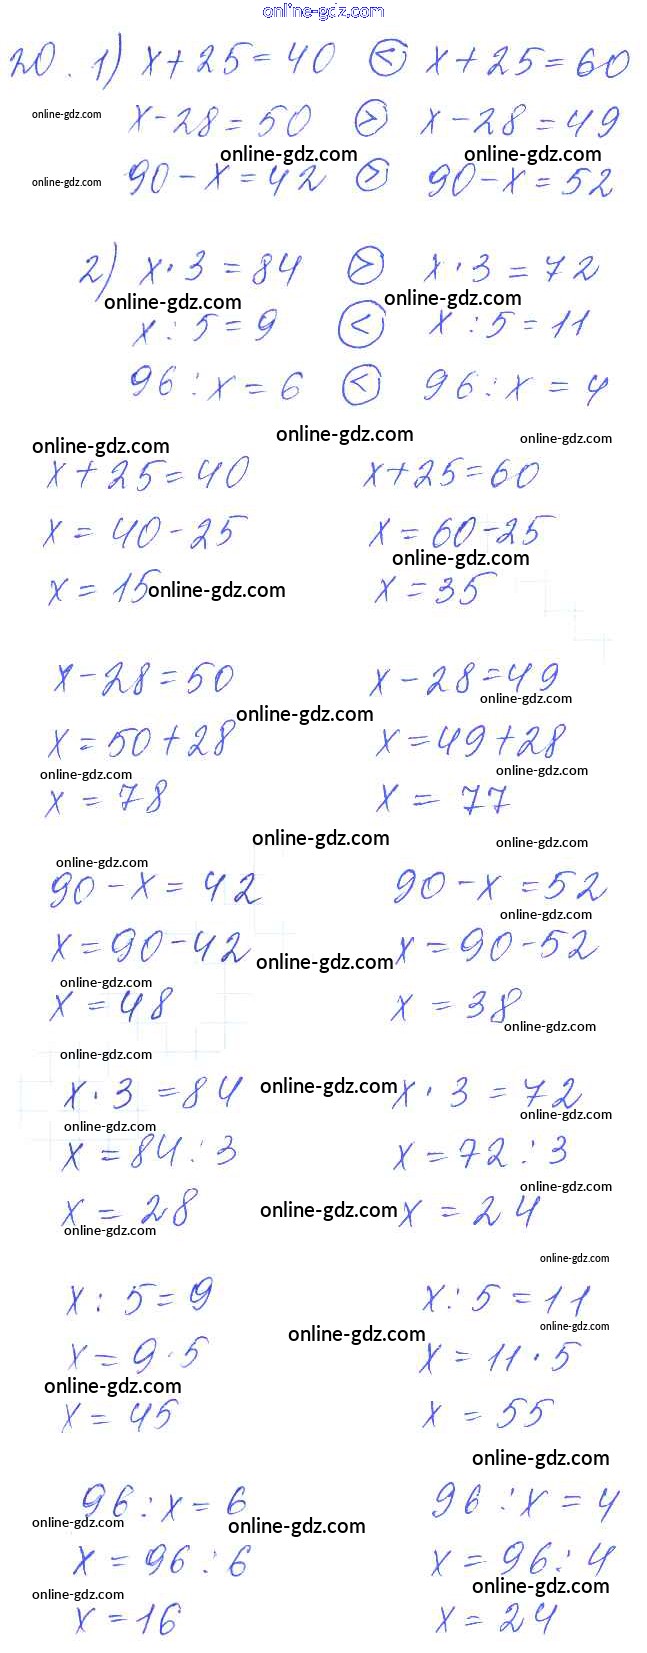 online-gdz.com
20. 1) x+25=40 < x+25=60
online-gdz.com x-28=50 > x-28=49
online-gdz.com online-gdz.com
online-gdz.com 90-x=42 > 90-x=52
2) x·3=84 > x·3=72
online-gdz.com online-gdz.com
x:5=9 < x:5=11
96:x=6 < 96:x=4
online-gdz.com online-gdz.com online-gdz.com
x+25=40 x+25=60
x=40-25 x=60-25
online-gdz.com
x=15 online-gdz.com x=35
x-28=50 x-28=49
online-gdz.com online-gdz.com
x=50+28 x=49+28
online-gdz.com online-gdz.com
x=78 x=77
online-gdz.com online-gdz.com
online-gdz.com
90-x=42 90-x=52
online-gdz.com
x=90-42 online-gdz.com x=90-52
online-gdz.com
x=48 x=38
online-gdz.com
online-gdz.com
x·3=84 online-gdz.com x·3=72
online-gdz.com online-gdz.com
x=84:3 x=72:3
online-gdz.com
x=28 online-gdz.com x=24
online-gdz.com
online-gdz.com
x:5=9 x:5=11
online-gdz.com online-gdz.com
x=9·5 x=11·5
online-gdz.com
x=45 x=55
online-gdz.com
96:x=6 96:x=4
online-gdz.com online-gdz.com
x=96:6 x=96:4
online-gdz.com online-gdz.com
x=16 x=24